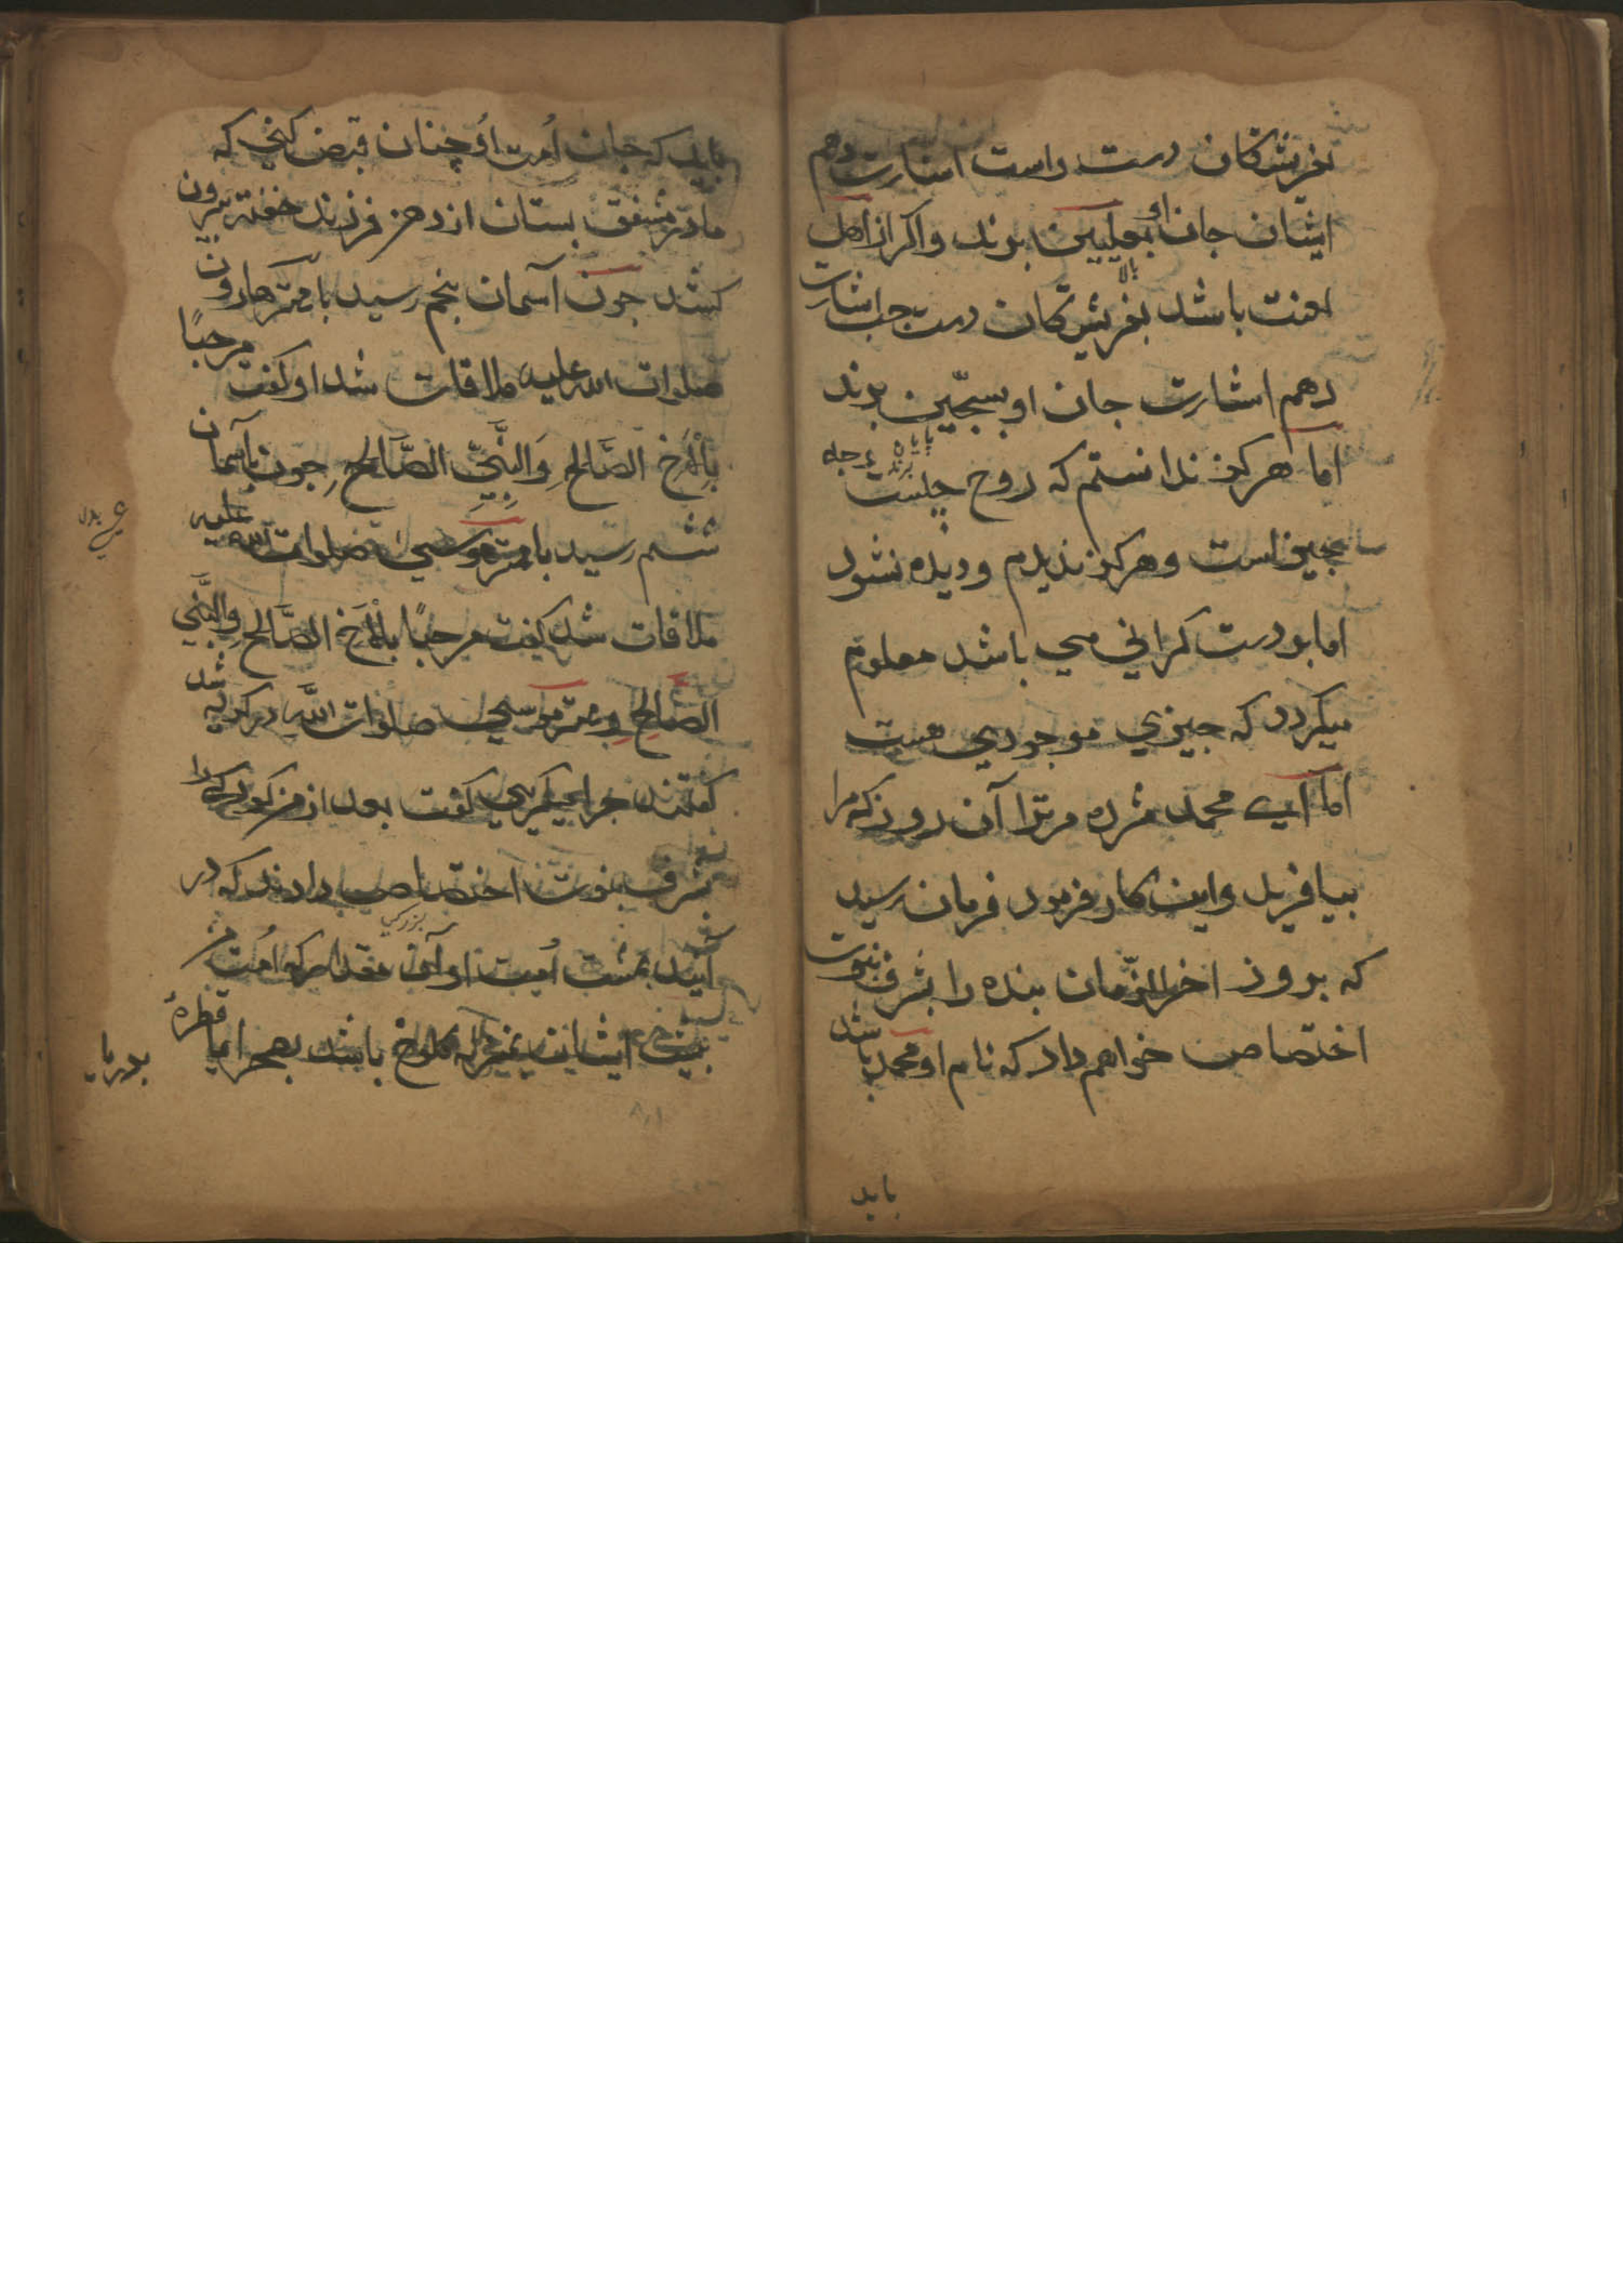 بفریشتکان دست راست اشارت دهم
ایشان جان او بعلیین برند واکر از اهل
بالا
لعنت باشد بفریشتکان دست جب اشارت
دهم اشارت جان او بسجّین برند
اما هرکز ندانستم که روح جیست
جیزیست وهرکز ندیدم ودیده نشود
اما بودست کرانی می باشد معلوم
میکردد که جیزی موجودی هست
اما ای محمد مژده مرترا آن روز که مرا
بیافرید واین کار فرمود فرمان رسید
که بروز اخر الزّمان بنده را بشرف نبوت
اختصاص خواهم داد که نام او محمد باشد
باید
باید که جان اُمت اُو چنان قبض کنی که
مادر مشفق بستان از دهن فرزند خفته بیرون
کشد جون آسمان بنجم رسید با مهتر هارون
صلوات الله علیه ملاقات شد او کفت مرحبًا
بِالْاَخِ الصَّالحِ وَالنَّبِيِّ الصَّالحِ جون بآسمان
ششم رسید با مهتر موسی صلوات الله علیه
ملاقات شد کفت مرحبًا بِالْاَخِ الصَّالحِ والنَّبي
الصَّالحِ ومهتر موسی صلوات اللَّه در کریه شد
کفتند جرا میکریی کفت بعد از من کودکی را
بشرف نبوت اختصاص دادند که در
بزرکی
آیند ببهشت اُمت او آن مقدار که اُمت من
بیش ایشان بمنزله کلوخ باشد بصحرا یا قطرهٔ
بدریا